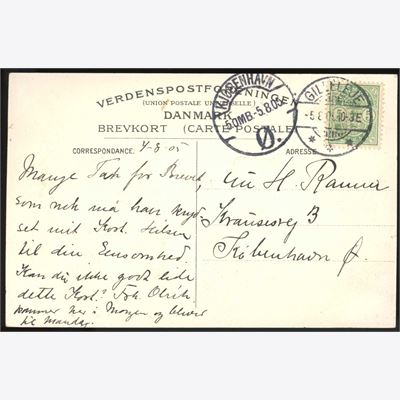 VERDENSPOSTFORENINGEN
(UNION POSTALE UNIVERSELLE)
DANMARK
BREVKORT (CARTE POSTALE)
KJØBENHAVN
5.OMB-5.8.05
Ø.
GILLELEJE
-5.8.05.10-3.E
CORRESPONDANCE. 4-8-05
ADRESSE
Mange Tak for Brevet,
som nok må have kryd-
set mit Kort. Hilsen
til din Ensomhed.
Kan du ikke godt lide
dette Kort? Frk. Olrik
kommer her i Morgen og bliver
til Mandag.
H. Ranner
Krausesvej 3
København Ø.